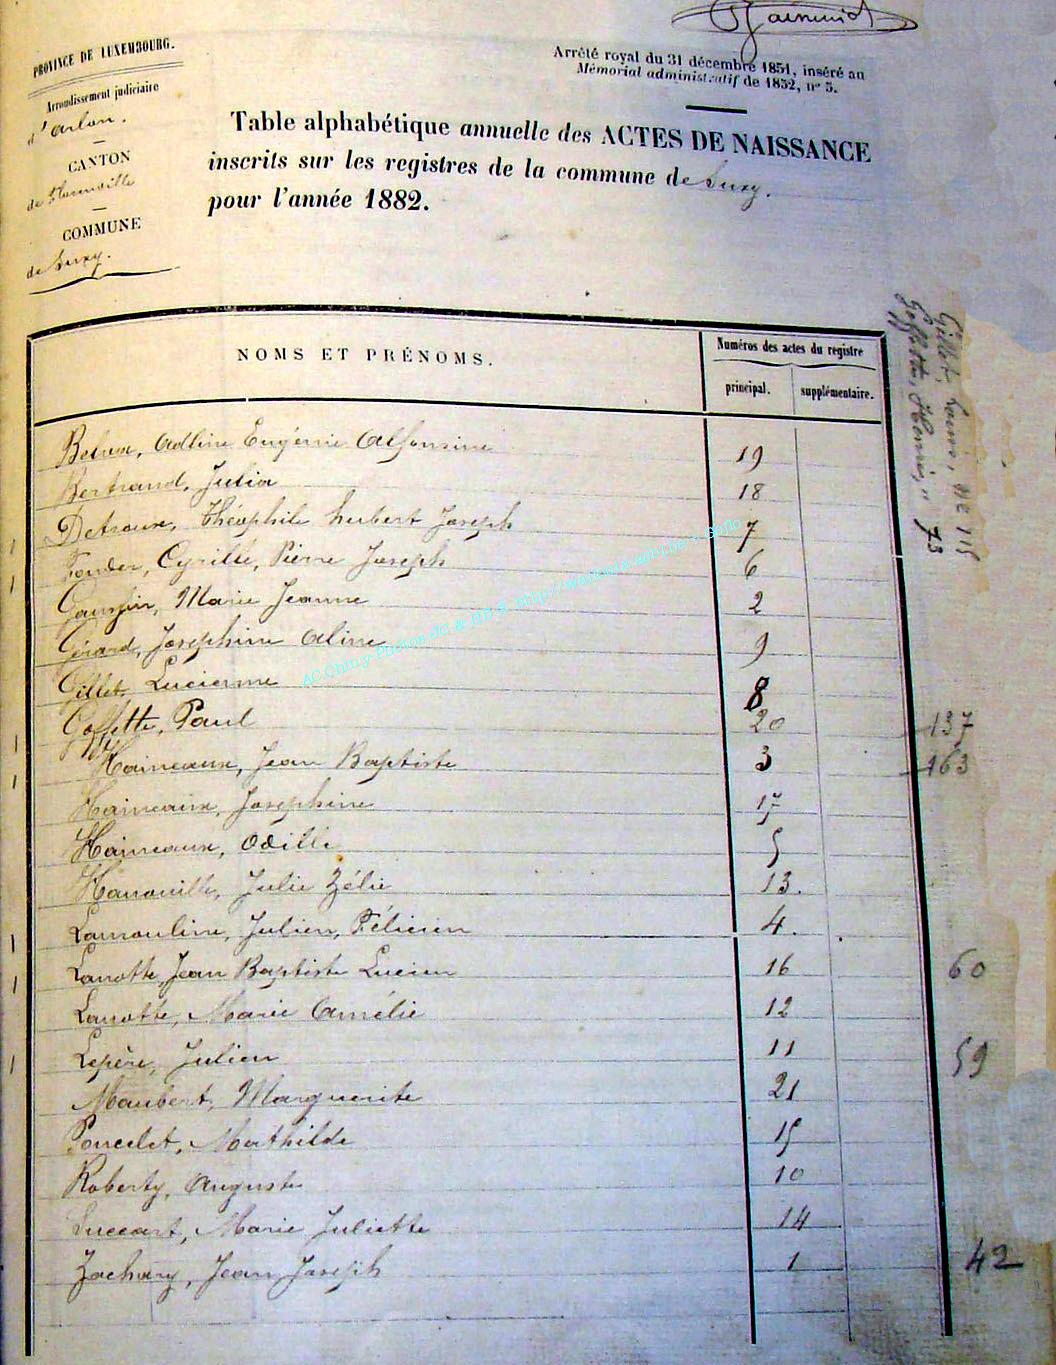 PROVINCE DE LUXEMBOURG.
Arrondissement judiciaire
d'Arlon.
CANTON
de Florenville
COMMUNE
de Suxy.
Arrêté royal du 31 décembre 1851, inséré au
Mémorial administratif de 1852, nº 5.
Table alphabétique annuelle des ACTES DE NAISSANCE
inscrits sur les registres de la commune de Suxy.
pour l'année 1882.
NOMS ET PRÉNOMS.
Numéros des actes du registre
principal. supplémentaire.
Adline Eugénie Alfonsine 19
Bertrand, Julia 18
Detroux, Théophile hubert Joseph 7
Fonder, Cyrille, Pierre Joseph 6
Marie Jeanne 2
Gérard, Josephine Aline 9
Gillet, Lucienne 8
Goffette, Paul 20
137
Haineaux, Jean Baptiste 3
163
Haineaux, Josephine 17
Haineaux, Odille 5
Julie Zélie 13.
Lamouline, Julien, Félicien 4.
Lanotte, Jean Baptiste Lucien 16
60
Lanotte, Marie Amélie 12
Lepère, Julien 11
59
Maubert, Marguerite 21
Poncelet, Mathilde 15
Roberty, Auguste 10
Marie Juliette 14
Zachary, Jean Joseph 1
42
Gillet, Louis, Nº 115
Goffette, Henri, " 73